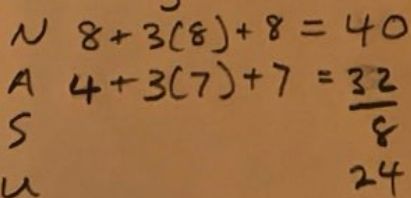 N 8+3(8)+8 = 40
A 4+3(7)+7 = 32
S 8
U 24